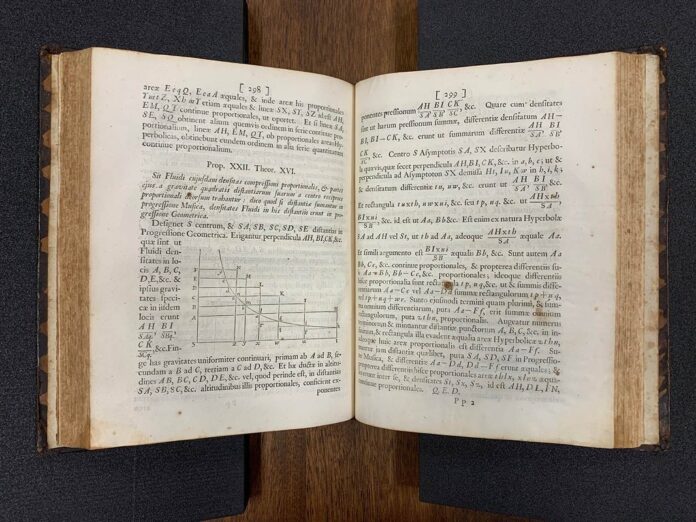 [ 298 ]
areæ EeqQ, EeaA æquales, & inde areæ his proportionales
YuvtZ, XhwT etiam æquales & lineæ SX, ST, SZ id est AH,
EM, QT continue proportionales, ut oportet. Et si lineæ SA,
SE, SQ obtinent alium quemvis ordinem in serie continue pro-
portionalium, lineæ AH, EM, QT, ob proportionales areas Hy-
perbolicas, obtinebunt eundem ordinem in alia serie quantitatum
continue proportionalium.
Prop. XXII. Theor. XVI.
Sit Fluidi cujusdam densitas compressioni proportionalis, & partes
ejus a gravitate quadratis distantiarum suarum a centro reciproce
proportionali deorsum trahantur: dico quod si distantiæ sumantur in
progressione Musica, densitates Fluidi in his distantiis erunt in pro-
gressione Geometrica.
Designet S centrum, & SA, SB, SC, SD, SE distantias in
Progressione Geometrica. Erigantur perpendicula AH, BI, CK, &c.
quæ sint ut
Fluidi den-
sitates in lo-
cis A, B, C,
D, E, &c. &
ipsius gravi-
tates speci-
ficæ in iisdem
locis erunt
AH/SAq. BI/SBq.
CK/SCq. &c. Fin-
ge has gravitates uniformiter continuari, primam ab A ad B, se-
cundam a B ad C, tertiam a C ad D, &c. Et hæ ductæ in altitu-
dines AB, BC, CD, DE, &c. vel, quod perinde est, in distantias
SA, SB, SC, &c. altitudinibus illis proportionales, conficient ex-
ponentes
[ 299 ]
ponentes pressionum AH/SA, BI/SB, CK/SC, &c. Quare cum densitates
sint ut harum pressionum summæ, differentiæ densitatum AH—
BI, BI—CK, &c. erunt ut summarum differentiæ AH/SA, BI/SB,
CK/SC, &c. Centro S Asymptotis SA, SX describatur Hyperbo-
la quævis, quæ secet perpendicula AH, BI, CK, &c. in a, b, c; ut &
perpendicula ad Asymptoton SX demissa Ht, Iu, Kw in h, i, k;
& densitatum differentiæ tu, uw, &c. erunt ut AH/SA, BI/SB, &c.
Et rectangula tu x th, uw x ui, &c. seu tp, uq, &c. ut AH x th/SA,
BI x ui/SB, &c. id est ut Aa, Bb &c. Est enim ex natura Hyperbolæ
SA ad AH vel St, ut th ad Aa, adeoque AH x th/SA æquale Aa.
Et simili argumento est BI x ui/SB æqualis Bb, &c. Sunt autem Aa
Bb, Cc, &c. continue proportionales, & propterea differentiis su-
is Aa—Bb, Bb—Cc, &c. proportionales; ideoque differentiis
hisce proportionalia sunt rectangula tp, uq, &c. ut & summis diffe-
rentiarum Aa—Cc vel Aa—Dd summæ rectangulorum tp + uq,
vel tp + uq + wr. Sunto ejusmodi termini quam plurimi, & sum-
ma omnium differentiarum, puta Aa—Ff, erit summæ omnium
rectangulorum, puta zthn, proportionalis. Augeatur numerus
terminorum & minuantur distantiæ punctorum A, B, C, &c. in in-
finitum, & rectangula illa evadent æqualia areæ Hyperbolicæ zthn,
adeoque huic areæ proportionalis est differentia Aa—Ff. Su-
mantur jam distantiæ quælibet, puta SA, SD, SF in Progressio-
ne Musica, & differentiæ Aa—Dd, Dd—Ff erunt æquales; &
propterea differentiis hisce proportionales areæ thlx, xlnz æqua-
les erunt inter se, & densitates St, Sx, Sz, id est AH, DL, FN,
continue proportionales. Q. E. D.
Pp 2